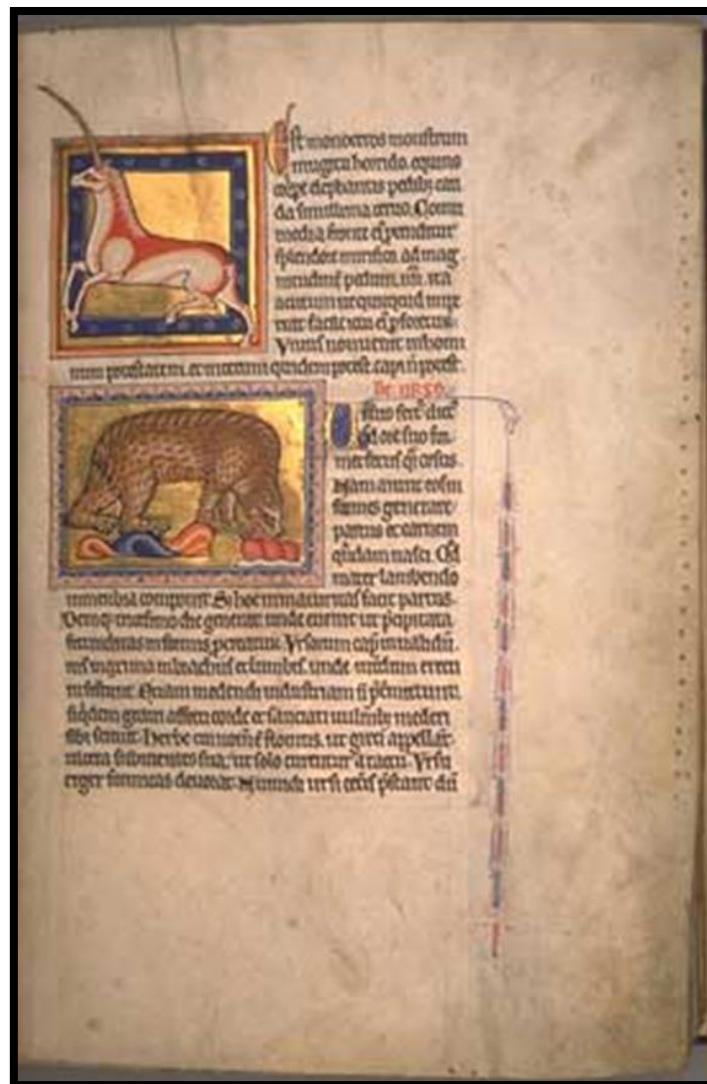 Est monoceros monstrum
mugitu horrido. equino
corpe elephantis pedibꝫ cau
da simillima ceruo. Cornu
media fronte eiꝰ ptenditur
splendore mirifico. ad mag
nitudinē pedum. iiii. ita
acutum ut quicquid impe
tat facile ictu eiꝰ pforetur.
Viuus non uenit in homi
num potestatem. et interimi quidem potest. capi ñ potest.
De urso
ore suo
ursus.
Nam aiunt eos in
formes generare
partus et carnem
quādam nasci. Qđ
mater lambendo
in membra componit. Sed hoc inmaturitas facit partus.
Deniqꝫ tricesimo die generat. unde euenit ut pcipitata
fecunditas informes procreatur. Vrsorum cap̃ inualidū.
uis in et lumbis. unde interdum erecti
insistunt. Etiam medendi industriam ñ ptermittunt.
siqdem graui affecti cede et sauciati uulnibꝫ mederi
sibi sciunt. herbe cui nom̃ ē flomus. ut greci appellāt
ulcera subicientes sua. ut solo curentur a tactu. Vrsus
eger formicas deuorat. Numidi ursi cet̃is pstant dū